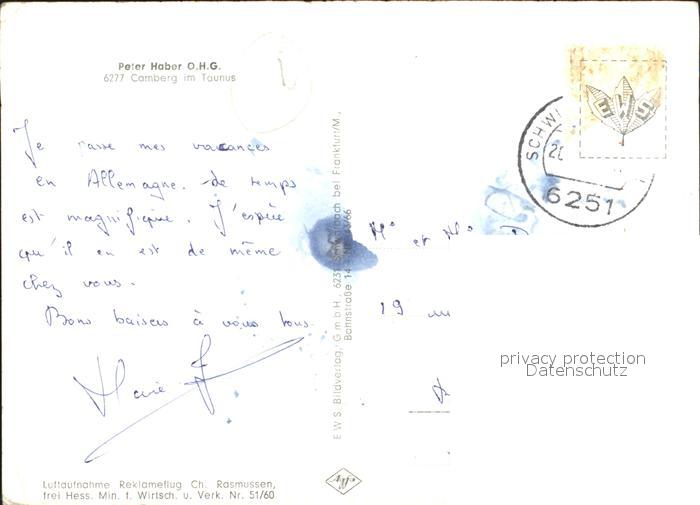 Peter Haber O.H.G.
6277 Camberg im Taunus
Je passe mes vacances
en Allemagne. Le temps
est magnifique. J'espère
qu'il en est de même
chez vous.
Bons baisers à vous tous.
Marie
Luftaufnahme Reklameflug Ch. Rasmussen,
frei Hess. Min. f. Wirtsch. u. Verk. Nr. 51/60
EWS Bildverlag, GmbH, 6231 bach bei Frankfurt/M.,
Bahnstraße 14
SCHWI
6251
EWS
Mr et Mme
19
privacy protection
Datenschutz